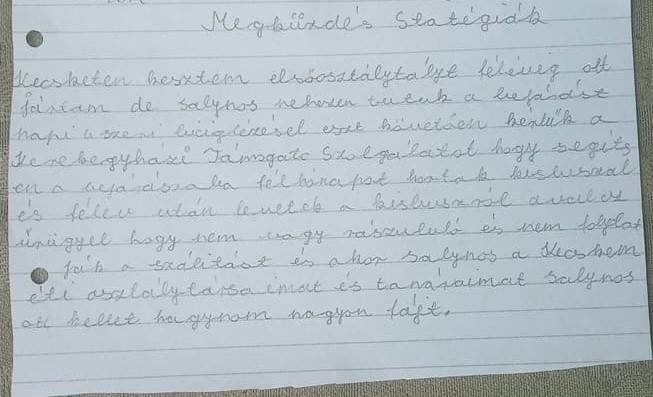 Megküzdés Statégiák
Kecsketen kesztem elsőosztálytályt féléveig ott
jártam de salynos nehezen tutuk a befárdást
hapi uszeni biciglizésel ezét követően kértük a
Kerekegyházi Támogató Szolgálatot hogy segits
en a befárdásaba fél hónapot hoztak kisbusszal
és féléu után levettek a kisbuszról avval az
ürügyel hogy nem vagy rászululó és nem folydat
juk a szálitást és akor salynos a Kecskem
éti osztálytársaimat és tanáraimat salynos
ott kellet hagynom nagyon fájt.